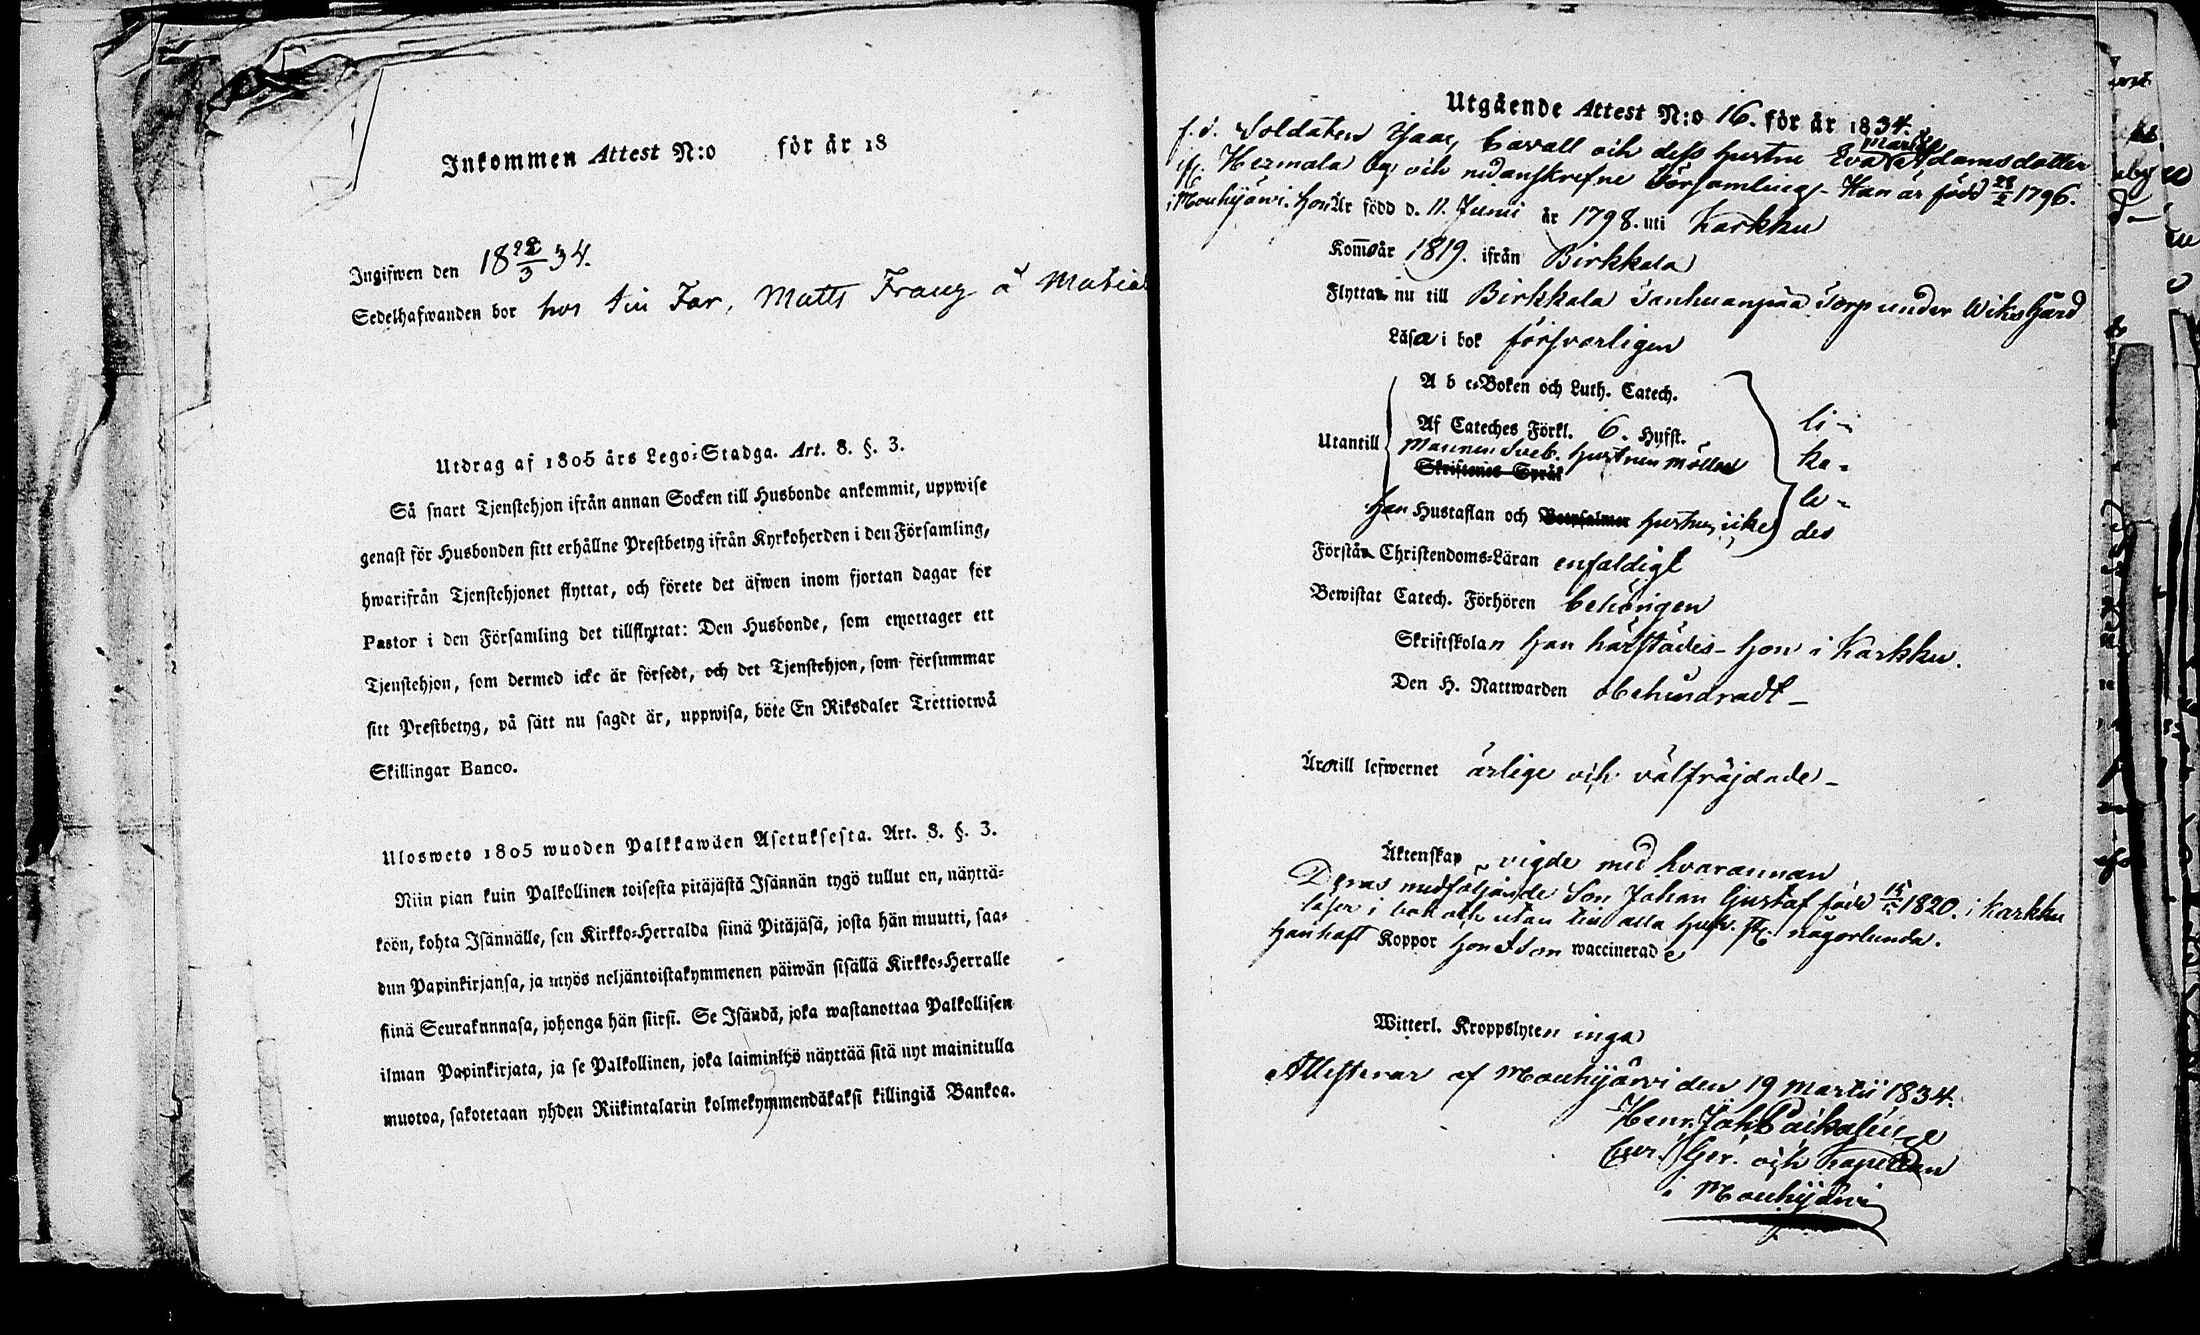 Inkommen Attest N:o för år 18
Ingifwen den 18 22/3 34.
Sedelhafwanden bor hos sin Far, Matts Franz å
Utdrag af 1805 års Lego-Stadga. Art. 8. §. 3.
Så snart Tjenstehjon ifrån annan Socken till Husbonde ankommit, uppwise
genast för Husbonden sitt erhållne Prestbetyg ifrån Kyrkoherden i den Församling,
hwarifrån Tjenstehjonet flyttat, och förete det äfwen inom fjortan dagar för
Pastor i den Församling det tillflyttat: Den Husbonde, som emottager ett
Tjenstehjon, som dermed icke är försedt, och det Tjenstehjon, som försummar
sitt Prestbetyg, på sätt nu sagdt är, uppwisa, böte En Riksdaler Trettiotwå
Skillingar Banco.
Ulosweto 1805 wuoden Palkkawäen Asetuksesta. Art. 8. §. 3.
Niin pian kuin Palkollinen toisesta pitäjästä Isännän tygö tullut on, näyttä-
köön, kohta Isännälle, sen Kirkko-Herralda siinä Pitäjäsä, josta hän muutti, saa-
dun Papinkirjansa, ja myös neljäntoistakymmenen päiwän sisällä Kirkko-Herralle
siinä Seurakunnasa, johonga hän siirsi. Se Isändä, joka wastanottaa Palkollisen
ilman Papinkirjata, ja se Palkollinen, joka laiminlyö näyttää sitä nyt mainitulla
muotoa, sakotetaan yhden Riikintalarin kolmekymmendäkaksi killingiä Bankoa.
Utgående Attest N:o 16. för år 1834.
f.d. Soldaten Isaac Cavall och dess hustru Eva Adamsdotter
fr. Hermala by och nedanskrefne Församling - Han är född 28/2 1796.
i Mouhijärvi. Hon Är född d. 11. Junii år 1798. uti Karkku
Kom̄o år 1819. ifrån Birkkala
Flytta nu till Birkkala Tanhuanpää Torp under Wiks Gård
Läsa i bok försvarligen
A b c-Boken och Luth. Catech.
Af Cateches Förkl. 6. Hufst.
Utantill
Mannen Sveb. hustrun Möllers
Skriftenes Språk
Han Hustaflan och hustrun icke
li-
ka-
le-
des
Förstå Christendoms-Läran enfaldigt
Bewistat Catech. Förhören behörigen
Skriftskolan han härstädes - hon i Karkku.
Den H. Nattwarden obehindradt -
Äro till lefwernet ärlige och välfräjdade -
Äktenskap vigde med hvarannan
Deras medföljande Son Johan Gustaf född 1820. i Karkku
läser i bok och utan till alla någorlunda.
Han haft Koppor Hon & Son waccinerade
Witterl. Kroppslyten inga
Attesterar af Mouhijärvi den 19 Martii 1834.
Henr. Joh.
och Kapellan
i Mouhijärvi